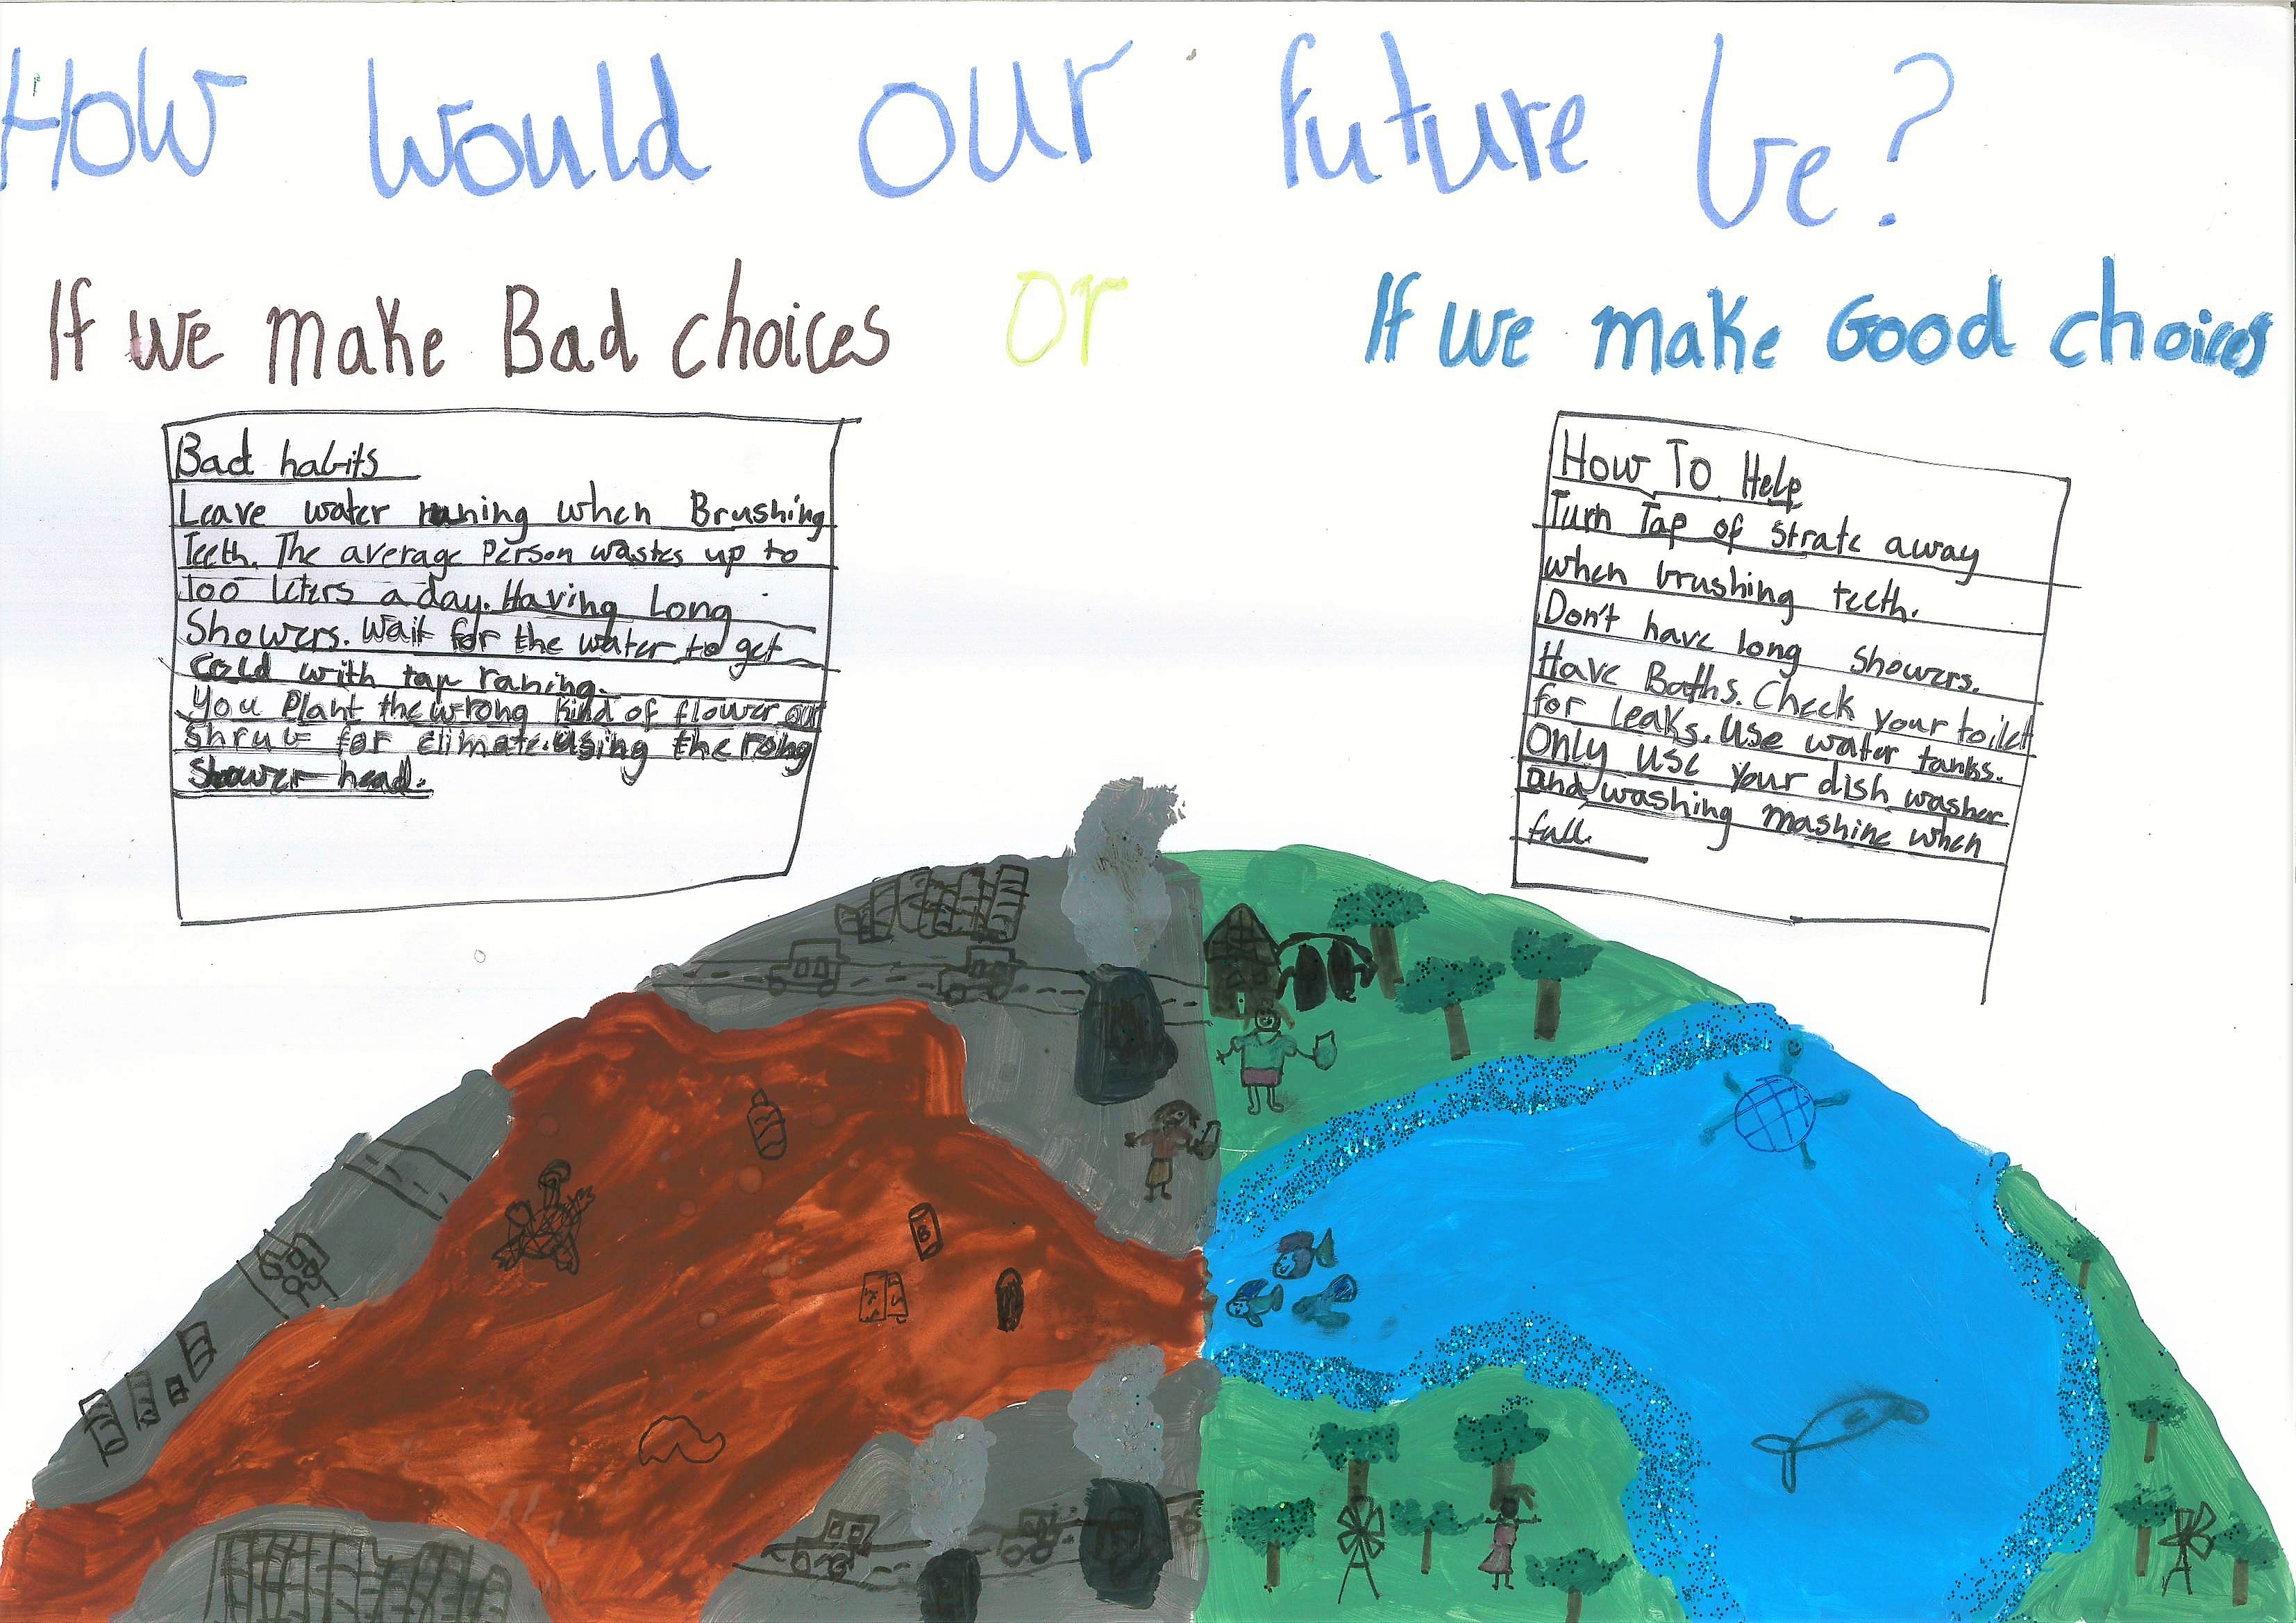 How would our future be?
If we make Bad choices or If we make Good choices
Bad habits
Leave water runing when Brushing
Teeth. The average Person wastes up to
100 leters a day. Having Long
Showers. Wait for the water to get
cold with tap raning.
You Plant the wrong kind of flower our
shrub for climate. using the rong
shower head.
How To Help
Turn Tap of strate away
when brushing teeth.
Don't have long showers.
Have Baths. Check your toilet
for leaks. Use water tanks.
Only use your dish washer
and washing mashine when
full.
B